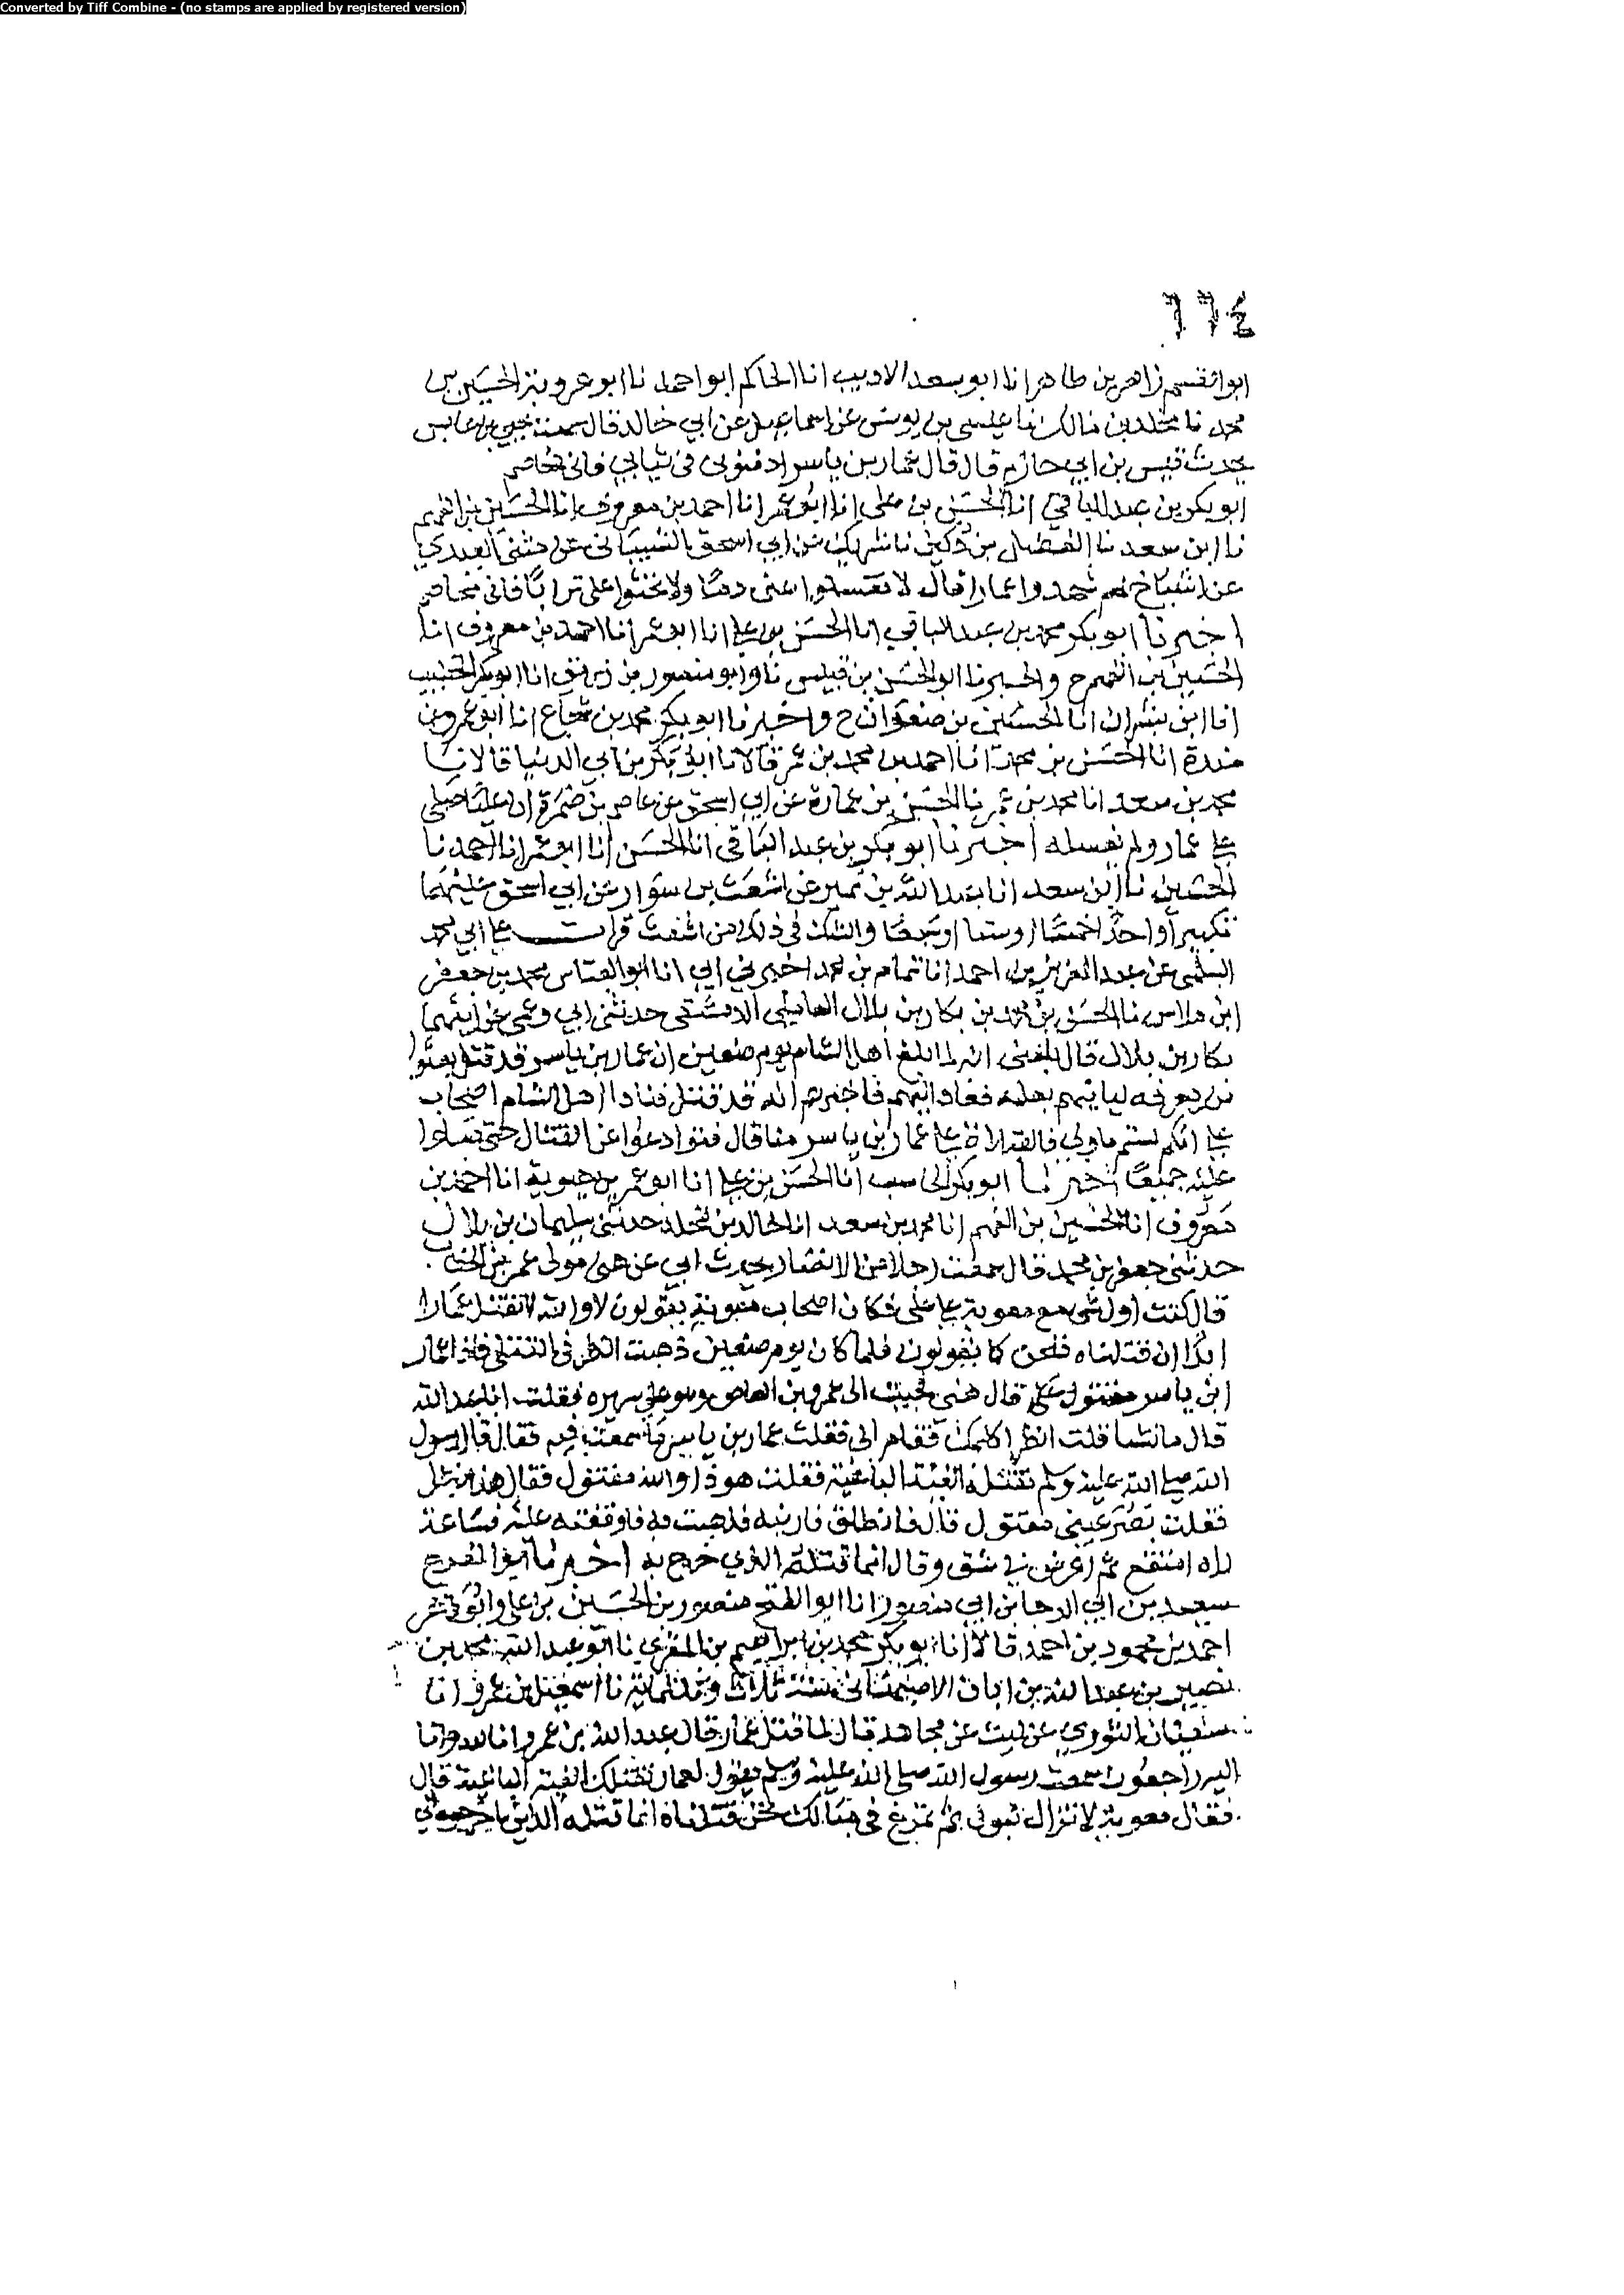 Converted by Tiff Combine - (no stamps are applied by registered version)
٦٦٤
ابو القسم زاهر بن طاهر انا ابو سعد الاديب انا الحاكم ابو احمد نا ابو عروبة الحسين بن
محمد نا مخلد بن مالك نا عيسى بن يونس عن اسماعيل عن ابي خالد قال سمعت يحيى بن عابس
يحدث قيس بن ابي حازم قال قال عمار بن ياسر ادفنوني في ثيابي فاني مخاصم
ابو بكر بن عبد الباقي انا الحسن بن علي انا ابو عمر انا احمد بن معروف انا الحسين بن الفهم
نا ابن سعد نا الفضل بن دكين نا شريك عن ابي اسحق الشيباني عن مثنى العبدي
عن اشياخ لهم شهدوا عمارا قال لا تغسلوا عني دما ولا تحثوا علي ترابا فاني مخاصم
اخبرنا ابو بكر محمد بن عبد الباقي انا الحسن بن علي انا ابو عمر انا احمد بن معروف انا
الحسين بن الفهم ح واخبرنا ابو الحسن بن قبيس نا وابو منصور بن زريق انا ابو بكر الخطيب
انا ابن بشران انا الحسين بن صفوان ح واخبرنا ابو بكر محمد بن شجاع انا ابو عمرو بن
مندة انا الحسن بن محمد انا احمد بن محمد بن عمر قالا نا ابو بكر بن ابي الدنيا قالا نا
محمد بن سعد انا محمد بن عمر نا الحسن بن عمارة عن ابي اسحق عن عاصم بن ضمرة ان عليا صلى
على عمار ولم يغسله اخبرنا ابو بكر بن عبد الباقي انا الحسن انا ابو عمر انا احمد نا
الحسين نا ابن سعد انا عبد الله بن نمير عن اشعث بن سوار عن ابي اسحق عليهما
تكبيرا واحدا خمسا او ستا او سبعا والشك في ذلك من اشعث قرات على ابي محمد
السلمي عن عبد العزيز بن احمد انا تمام بن محمد اخبرني ابي انا ابو العباس محمد بن جعفر
ابن ملاس نا الحسن بن محمد بن بكار بن بلال العاملي الدمشقي حدثني ابي وعمي عن ابيهما
بكار بن بلال قال بلغني انه لما بلغ اهل الشام يوم صفين ان عمار بن ياسر قد قتل بعثوا
من يعرفه ليا تيهم بعلمه فعاد اليهم فاخبرهم انه قد قتل فنادا اهل الشام اصحاب
على انكم لستم باولى بالصلاة على عمار بن ياسر منا قال فتوادعوا عن القتال حتى صلوا
عليه جميعا اخبرنا ابو بكر الحاسب انا الحسن بن علي انا ابو عمر بن حيوية انا احمد بن
معروف انا الحسين بن الفهم انا محمد بن سعد انا خالد بن مخلد حدثني سليمان بن بلال
حدثني جعفر بن محمد قال سمعت رجلا من الانصار يحدث ابي عن هنى مولى عمر بن الخطاب
قال كنت اول شي مع معوية على علي فكان اصحاب معوية يقولون لا والله لا نقتل عمارا
ابدا ان قتلناه فنحن كما يقولون فلما كان يوم صفين ذهبت انظر في القتلى فاذا عمار
ابن ياسر مقتول قال هنى فجيت الى عمرو بن العاص وهو على سريره فقلت ابا عبد الله
قال ما تشا قلت انظر اكلمك فقام الي فقلت عمار بن ياسر ما سمعت فيه فقال قال رسول
الله صلى الله عليه وسلم تقتله الفئة الباغية فقلت هو ذا والله مقتول فقال هذا باطل
فقلت بصر عيني مقتول قال فانطلق فارينه فذهبت به فاوقفته عليه فساعة
راه انتقع ثم اعرض في شق وقال انما قتله الذي خرج به اخبرنا ابو الفرج
سعيد بن ابي الرجا بن ابي منصور انا ابو الفتح منصور بن الحسين بن علي وابو طاهر
احمد بن محمود بن احمد قالا انا ابو بكر محمد بن ابراهيم بن المقري نا ابو عبد الله محمد بن
نصير بن عبد الله بن ابان الاصبهاني سنة ثلاث وثلثماية نا اسمعيل بن عمرو نا
سفيان الثوري عن ليث عن مجاهد قال لما قتل عمار قال عبد الله بن عمرو انا لله وانا
اليه راجعون سمعت رسول الله صلى الله عليه وسلم يقول لعمار تقتلك الفية الباغية قال
فقال معوية لا تزال تبوئى ثم تمرغ في مبالك نحن قتلناه انما قتله الذين